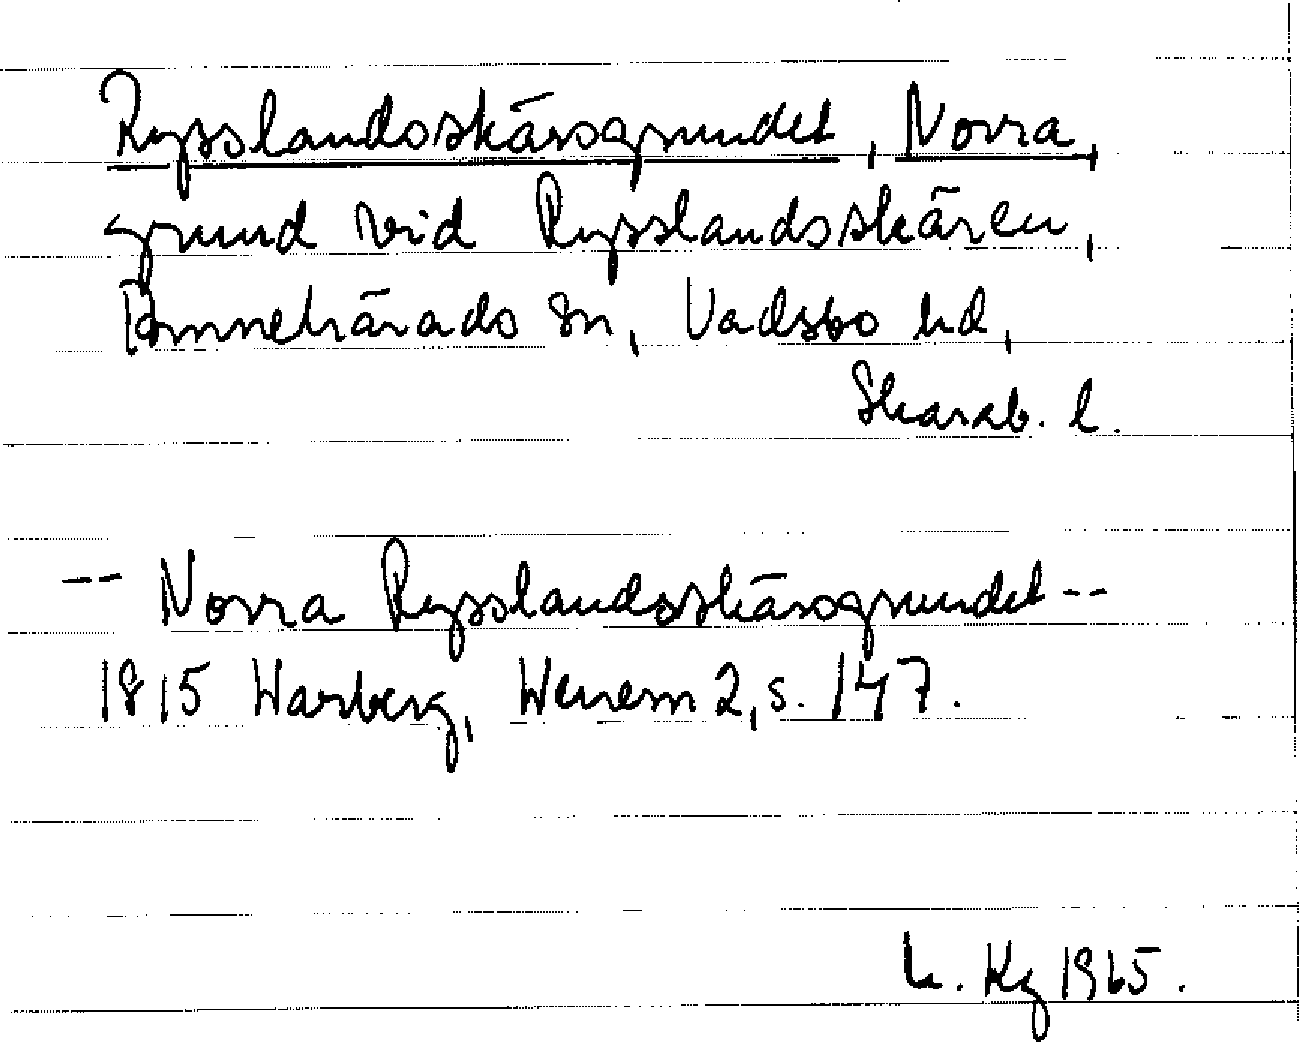 Rysslandsskärsgrundet, Norra,
grund vid Rysslandsskären,
Amnehärads sn, Vadsbo hd,
Skarab. l.
-- Norra Rysslandsskärsgrundet --
1815 Warberg, Wenern 2, s. 147.
Kg 1965.